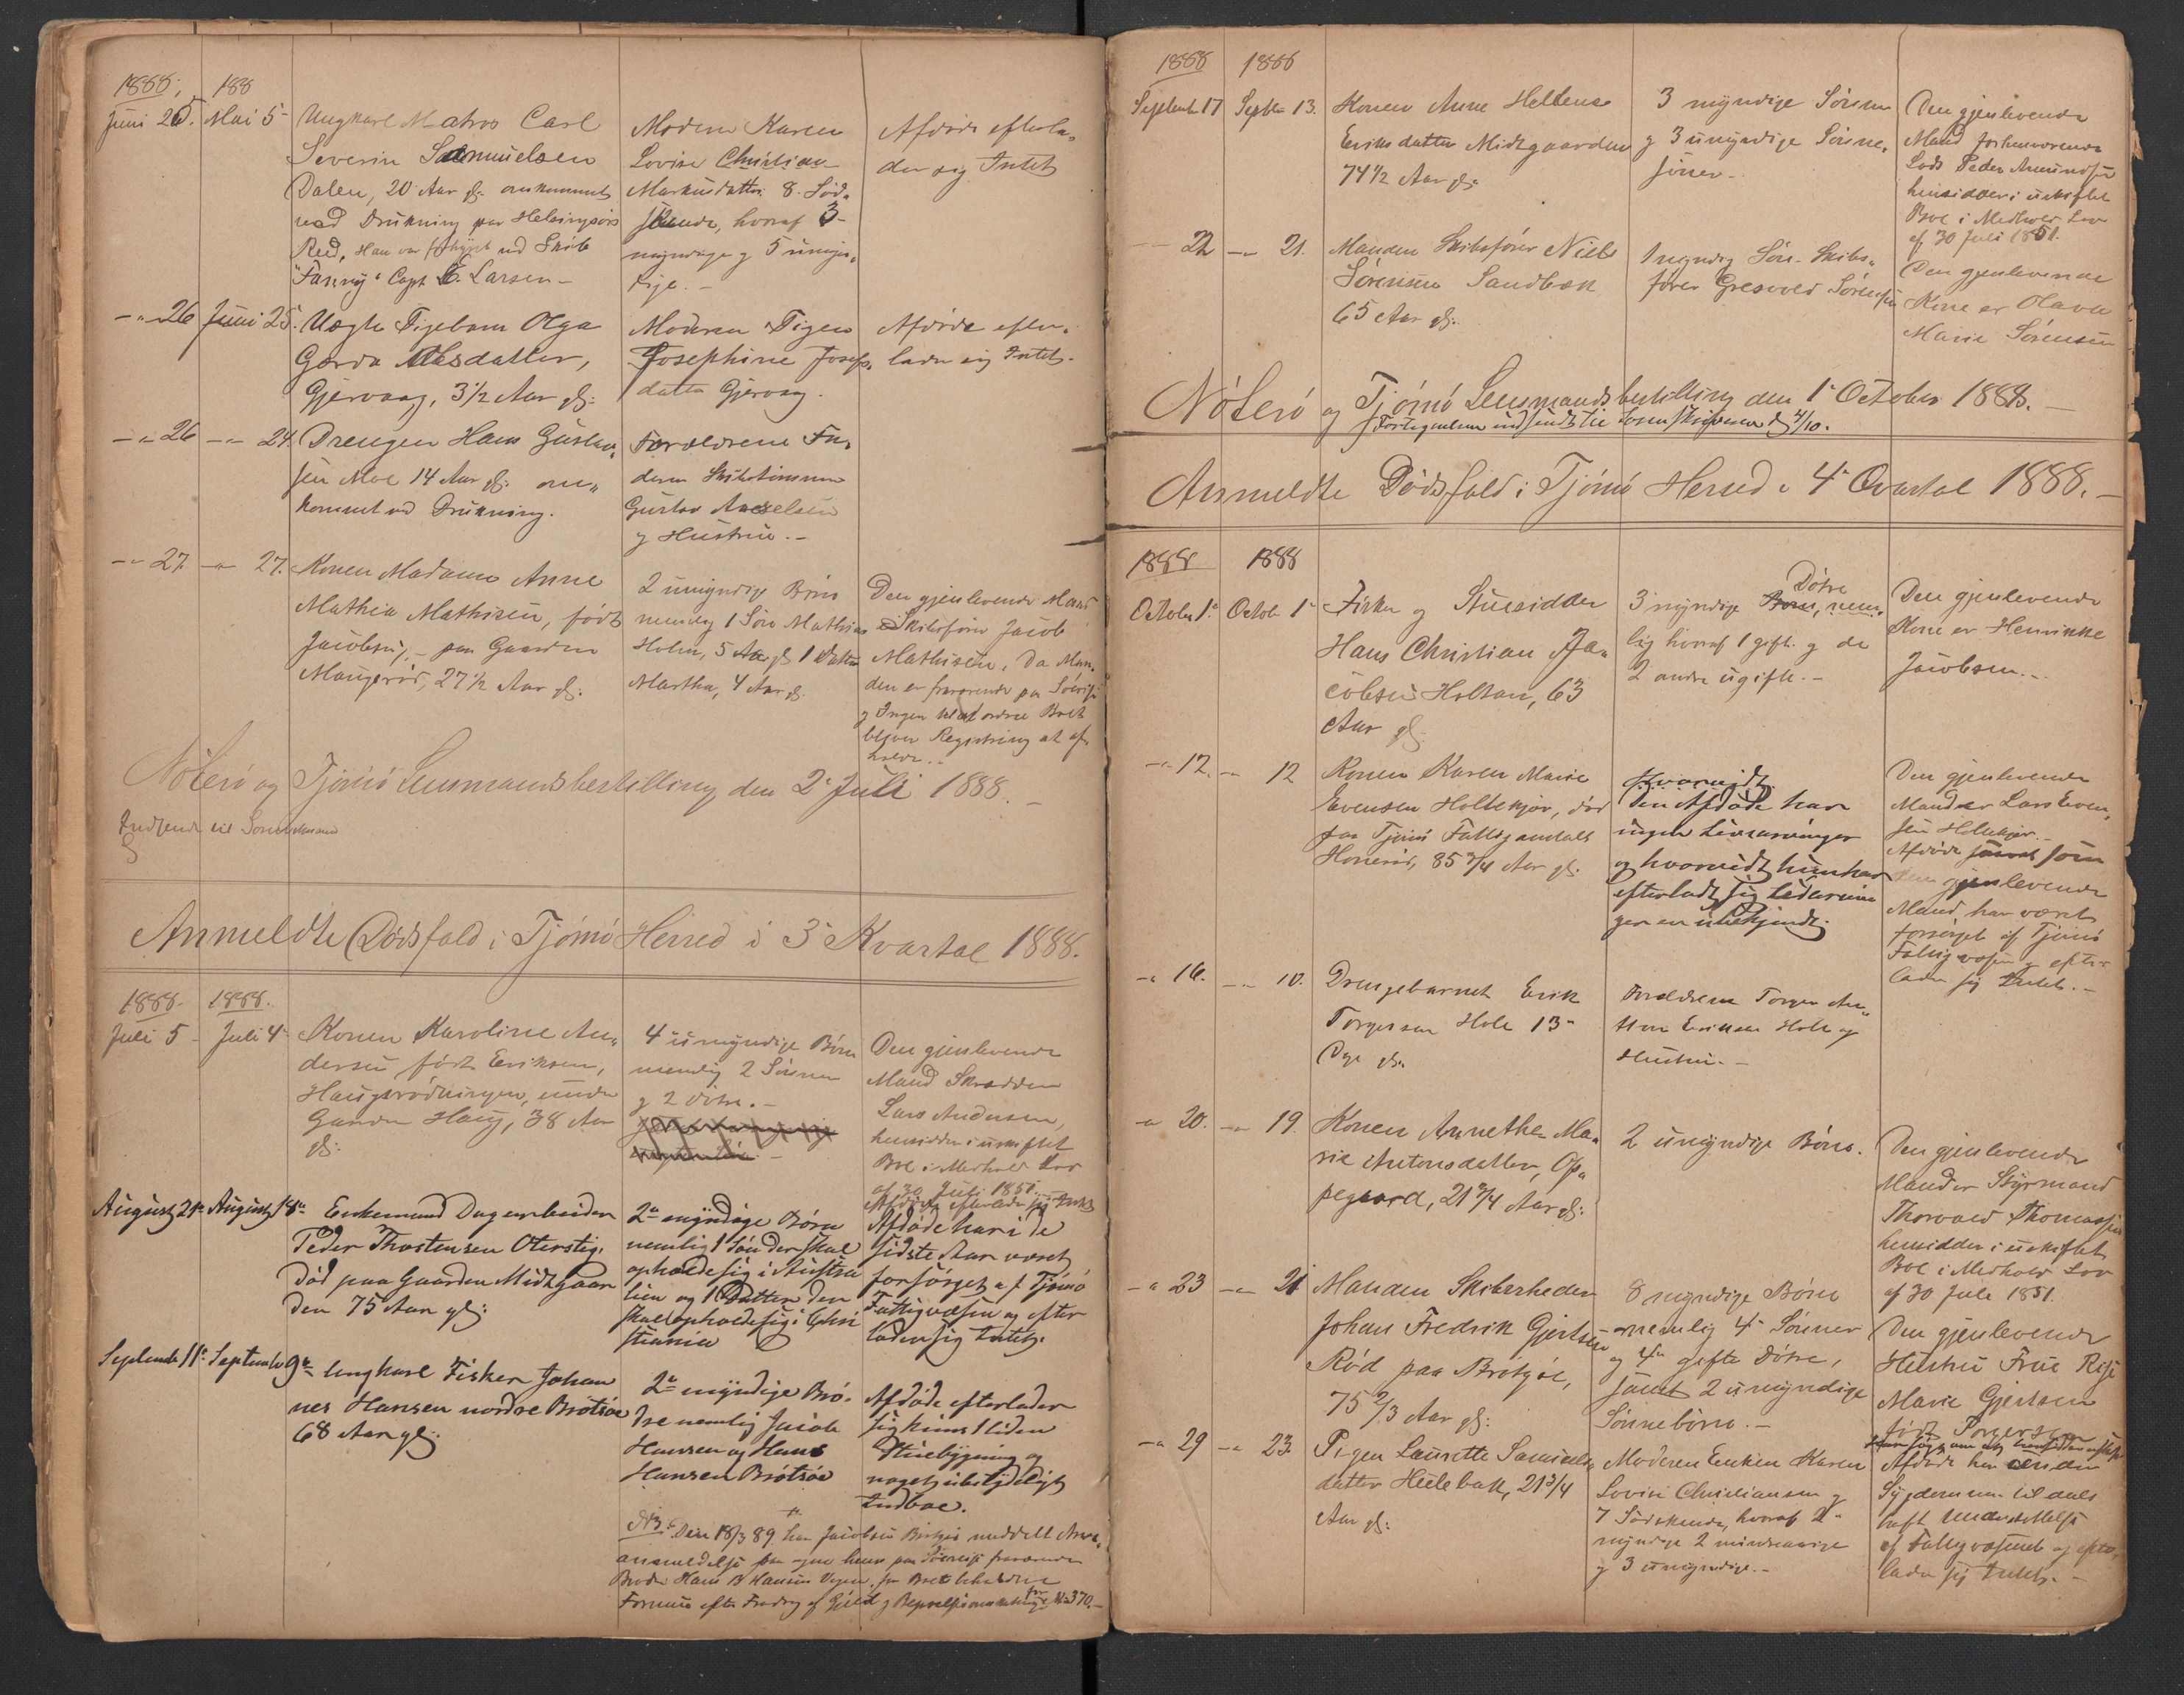 1888. 188
Juni 25. Mai 5 Ungkarl Matros Carl
Severin Samuelsen
Dalen, 20 Aar gl: omkommet
ved Drukning paa Helsingørs
Red, Han var forhyret med Skib
"Fanny" Capt E. Larsen –
Moderen Karen
Lovise Christian
Markusdatter 8. Sød-
skende, hvoraf 3
myndige og 5 umyn-
dige. –
Afdøde efterla-
der sig Intet
–"– 26 Juni 25. Uægte Pigebarn Olga
Gerda Olsdatter,
Gjervaag, 3 1/2 Aar gl:
Moderen Pigen
Josephine Josefs-
datter Gjervaag.
Afdøde efter-
lader sig Intet.
–"– 26 –"– 24. Drengen Hans Gustav-
sen Moe 14 Aar gl: om-
kommet ved Drukning.
Forældrene Fa-
deren Skibstømmerm
Gustav Axelsen
og Hustru. –
–"– 27 –"– 27. Konen Madame Anne
Mathea Mathisen, født
Jacobsen, – paa Gaarden
Maugerød, 27 1/2 Aar gl:
2 umyndige Børn
nemlig 1 Søn Mathias
Holm, 5 Aar gl 1 Datter
Martha, 4 Aar gl.
Den gjenlevende Mand
er Skibsfører Jacob
Mathisen. Da Man-
den er fraværende paa Søreise
og Ingen til at ordne Boet
bliver Registrering at af-
holde. –
Nøterø og Tjømø Lensmandsbestilling den 2 Juli 1888. –
Indsendt til Sorenskriveren
Anmeldte Dødsfald i Tjømø Herred i 3 Kvartal 1888.
1888. 1888.
Juli 5 Juli 4 Konen Karoline An-
dersen født Eriksen,
Haugsrødningen, under
Gaarden Haug, 38 Aar
gl:
4 umyndige Børn
nemlig 2 Sønner
og 2 Døtre. –
Den gjenlevende
Mand Skrædder
Lars Andersen,
hensidder i uskiftet
Boe i Medhold Lov
af 30 Juli 1851. –
Afdøde efterlader sig Intet
August 21 August 18 Enkemand Dagarbeider
Peder Thostensen Oterstig.
død paa Gaarden Midtgaar
den 75 Aar gl:
2 myndige Børn
nemlig 1 Søn der skal
opholde sig i Austra
lien og 1 Datter der
skal opholde sig i Chri
stiania
Afdøde har i de
sidste Aar været
forsørget af Tjømø
Fattigvæsen og efter
lader sig Intet.
September 11 September 9 Ungkarl Fisker Johan
nes Hansen nordre Brøtsøe
68 Aar gl:
2 myndige Brø-
dre nemlig Jacob
Hansen og Hans
Hansen Brøtsøe
Afdøde efterlader
sig kuns 1 liden
Stuebygning og
noget ubetydeligt
Indboe.
NB. Den 18/3 89 har Jacobsen Brøtsø meddelt Arve-
anmeldelse paa egne hans paa Søreise fraværende
Broder Hans B Hansens Vegne, for Boets beholdne
Formue efter Fradrag af Gjæld og Begravelsesomkostninger for Kr 370. –
1888 1888
September 17 Septbr 13. Konen Anne Heltense
Eriksdatter Midtgaarden
74 1/2 Aar gl:
3 myndige Sønner
og 3 umyndige Sønne-
sønner –
Den gjenlevende
Mand forhenværende
Lods Peder Amundsen
hensidder i uskiftet
Boe i Medhold Lov
af 30 Juli 1851.
–"– 22 –"– 21. Manden Skibsfører Niels
Sørensen Sandbæk
65 Aar gl:
1 myndig Søn – Skibs-
fører Gresvold Sørensen
Den gjenlevende
Kone er Olava
Marie Sørensen
Nøterø og Tjømø Lensmandsbestilling den 1 October 1888. –
Fortegnelsen indsendt til Sorenskriveren d 4/10.
Anmeldte Dødsfald i Tjømø Herred i 4 Qvartal 1888. –
1888 1888
October 1. Octob 1 Fisker og Stuesidder
Hans Christian Ja-
cobsen Holtan, 63
Aar gl:
3 myndige Børn, Døtre nem-
lig hvoraf 1 gift og de
2 andre ugifte. –
Den gjenlevende
Kone er Henrikke
Jacobsen. –
–"– 12. –"– 12 Konen Karen Marie
Evensen Holtekjær, død
paa Tjømø Fattiganstalt
Honerød, 85 3/4 Aar gl:
Hvorvidt
den Afdøde har
ingen Livsarvinger
og hvorvidt hun har
efterladt sig Udarvin
ger er ubekjendt.
Den gjenlevende
Mand er Lars Even-
sen Holtekjær. –
Afdøde samt som
den gjenlevende
Mand, har været
forsørget af Tjømø
Fattigvæsen og efter-
lader sig Intet. –
–"– 16. –"– 10. Drengebarnet Erik
Torgersen Hole 13
Dge gl:
Forældrene Torger An-
ton Eriksen Hole og
Hustru. –
–"– 20. –"– 19. Konen Annethe Ma-
rie Antonsdatter, Op-
pegaard, 21 3/4 Aar gl:
2 umyndige Børn.
Den gjenlevende
Mand er Styrmand
Thorvald Thomassen
hensidder i uskiftet
Boe i Medhold Lov
af 30 Juli 1851.
–"– 23 –"– 21 Manden Skibsrheder
Johan Fredrik Gjertsen
Rød paa Brøtsøe,
75 2/3 Aar gl:
8 myndige Børn
nemlig 4 Sønner
og 4 gifte Døtre,
samt 2 umyndige
Sønnebørn. –
Den gjenlevende
Hustru Frue
Marie Gjertsen
født Torgersen
–"– 29 –"– 23. Pigen Laurette Samuels-
datter Hulebak, 21 3/4
Aar gl:
Moderen Enken Karen
Lovise Christiansen og
7 Sødskende, hvoraf 2
myndige 2 mindreaarige
og 3 umyndige. –
Afdøde har under
Sygdommen til dels
havt Understøttelse
af Fattigvæsenet og efter-
lader sig Intet. –